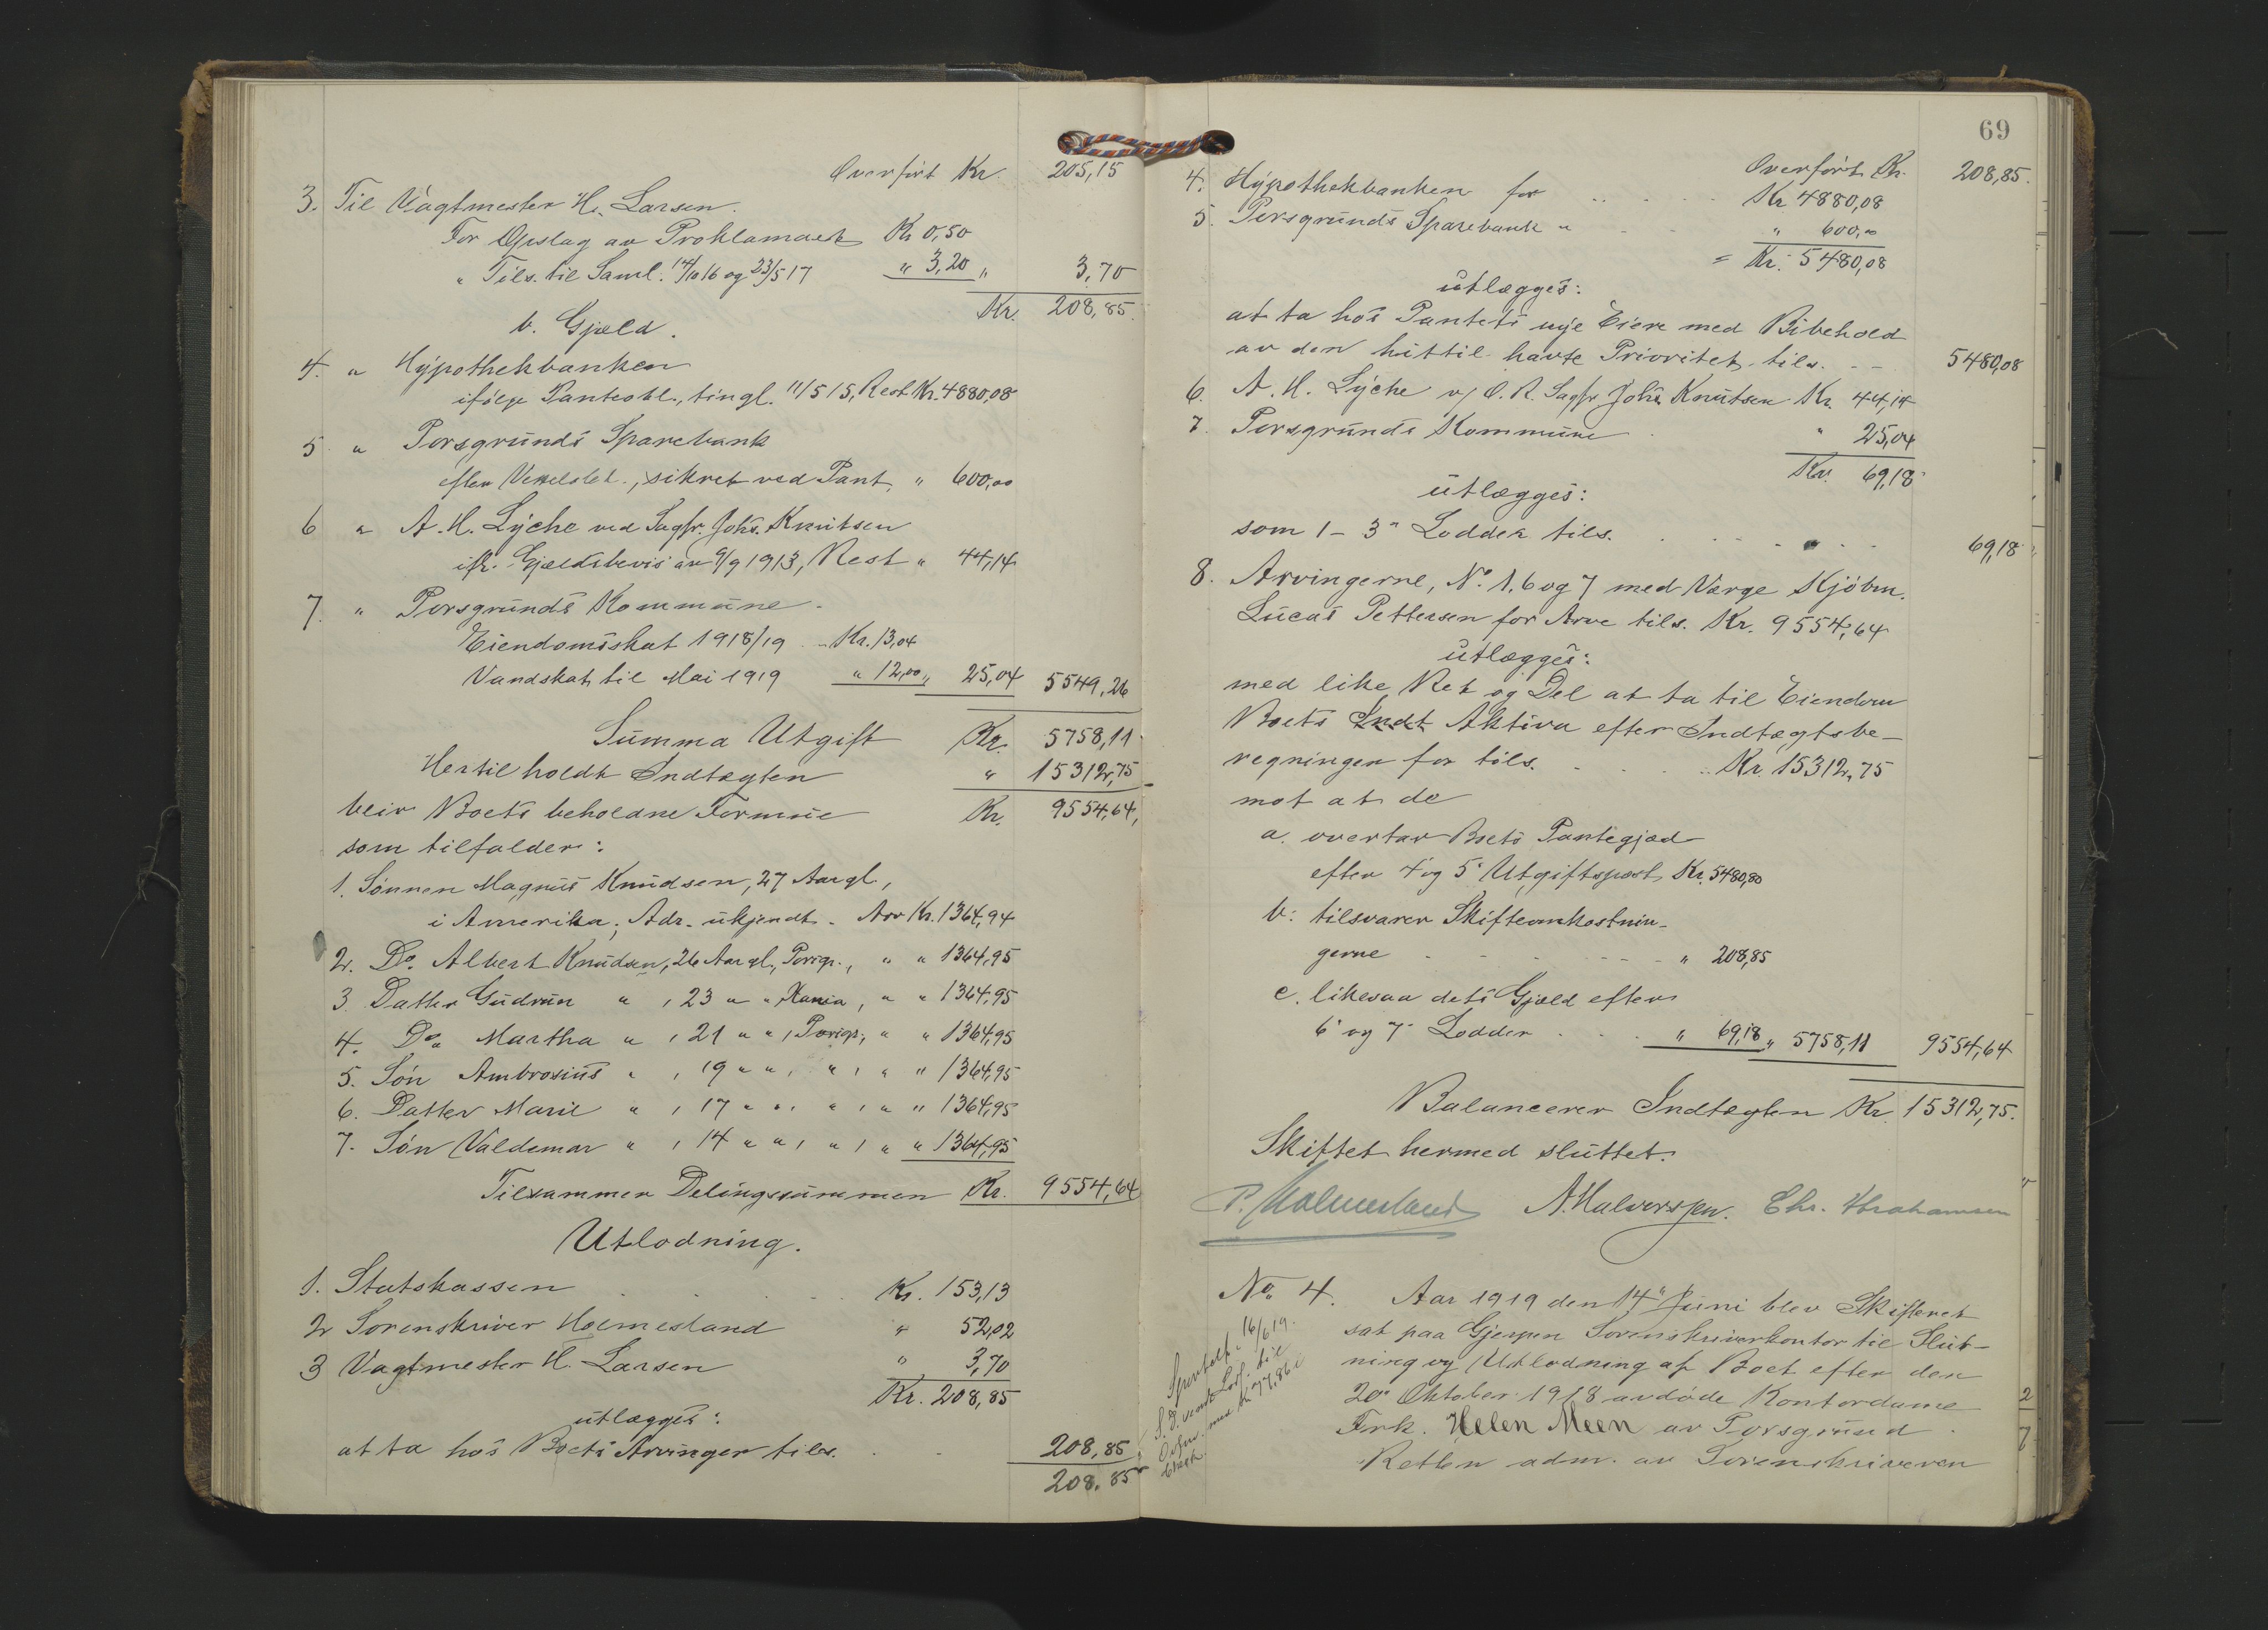 Overført Kr. 205,15
3. Til Vagtmester H. Larsen.
For Opslag av Proklamaet Kr 0,50
" Tils. til Saml. 14/10 16 og 23/5 17 " 3,20 " 3,70
Kr. 208,85.
b. Gjæld.
4. " Hypothekbanken
ifølge Panteobl., tingl. 11/5 15, Rest Kr. 4880,08
5 " Porsgrunds Sparebank
efter Vexelobl., sikret ved Pant, " 600,00
6 " A. H. Lyche ved Sagfr. Johs. Knutsen
iflg. Gjældsbevis av 9/9 1913, Rest " 44,14
7. " Porsgrunds Kommune.
Eiendomsskat 1918/19 .. Kr. 13,04
Vandskat til Mai 1919 " 12,00 " 25,04 5549,26
Summa Utgift Kr. 5758,11
Hertil holdt Indtægten " 15312,75
blir Boets beholdne Formue Kr. 9554,64,
som tilfalder:
1. Sønnen Magnus Knudsen, 27 Aar gl.,
i Amerika, Adr. ukjendt. Arv Kr. 1364,94
2. Do. Albert Knudsen, 26 Aar gl., Porsgr., " " 1364,95
3. Datter Gudrun " , 23 " " Xania, " " 1364,95
4. Do. Martha " , 21 " " , Porsgr., " " 1364,95
5. Søn Ambrosius " , 19 " " , " , " " 1364,95
6. Datter Marie " , 17 " " , " , " " 1364,95
7. Søn Valdemar " , 14 " " , " , " " 1364,95
Tilsammen Delingssummen Kr. 9554,64
Utlodning.
1. Statskassen . . . . Kr. 153,13
2 Sorenskriver Holmesland " 52,02
3 Vagtmester H. Larsen " 3,70
Kr. 208,85
utlægges:
at ta hos Boets Arvinger tils. . . 208,85
208,85
69
Overført Kr. 208,85.
4. Hypothekbanken for . . . . Kr 4880,08
5. Porsgrunds Sparebank " . . " 600,00
= Kr. 5480,08
utlægges:
at ta hos Pantets nye Eiere med Bibehold
av den hittil havte Prioritet tils. . . 5480,08
6. A. H. Lyche v/ O. R. Sagfr Johs Knutsen Kr. 44,14
7. Porsgrunds Kommune . " 25,04
Kr. 69,18
utlægges:
som 1 - 3" Lodder tils. . . . . . . 69,18
8. Arvingerne, No. 1, 6 og 7 med Værge Kjøbm.
Lucas Pettersen for Arve tils. Kr. 9554,64
utlægges:
med like Ret og Del at ta til Eiendom
Boets Indt Aktiva efter Indtægtsbe-
regningen for tils. . . . . . Kr. 15312,75
mot at de
a. overtar Boets Pantegjæd
efter 4' og 5' Utgiftspost Kr. 5480,80
b: tilsvarer Skifteomkostnin-
gerne . . . . . " 208,85
c. likesaa dets Gjæld efter
6' og 7' Lodder . . . " 69,18 " 5758,11 9554,64
Balancerer Indtægten Kr. 15312,75.
Skiftet hermed sluttet.
P. Holmesland A. Halvorsen. Chr. Abrahamsen
No. 4. Aar 1919 den 14" Juni blev Skifteret
sat paa Gjerpen Sorenskriverkontor til Slut-
ning og Utlodning af Boet efter den
20" Oktober 1918 avdøde Kontordame
Frk. Helen Meen av Porsgrund.
Retten adm. av Sorenskriveren
16/6 19.